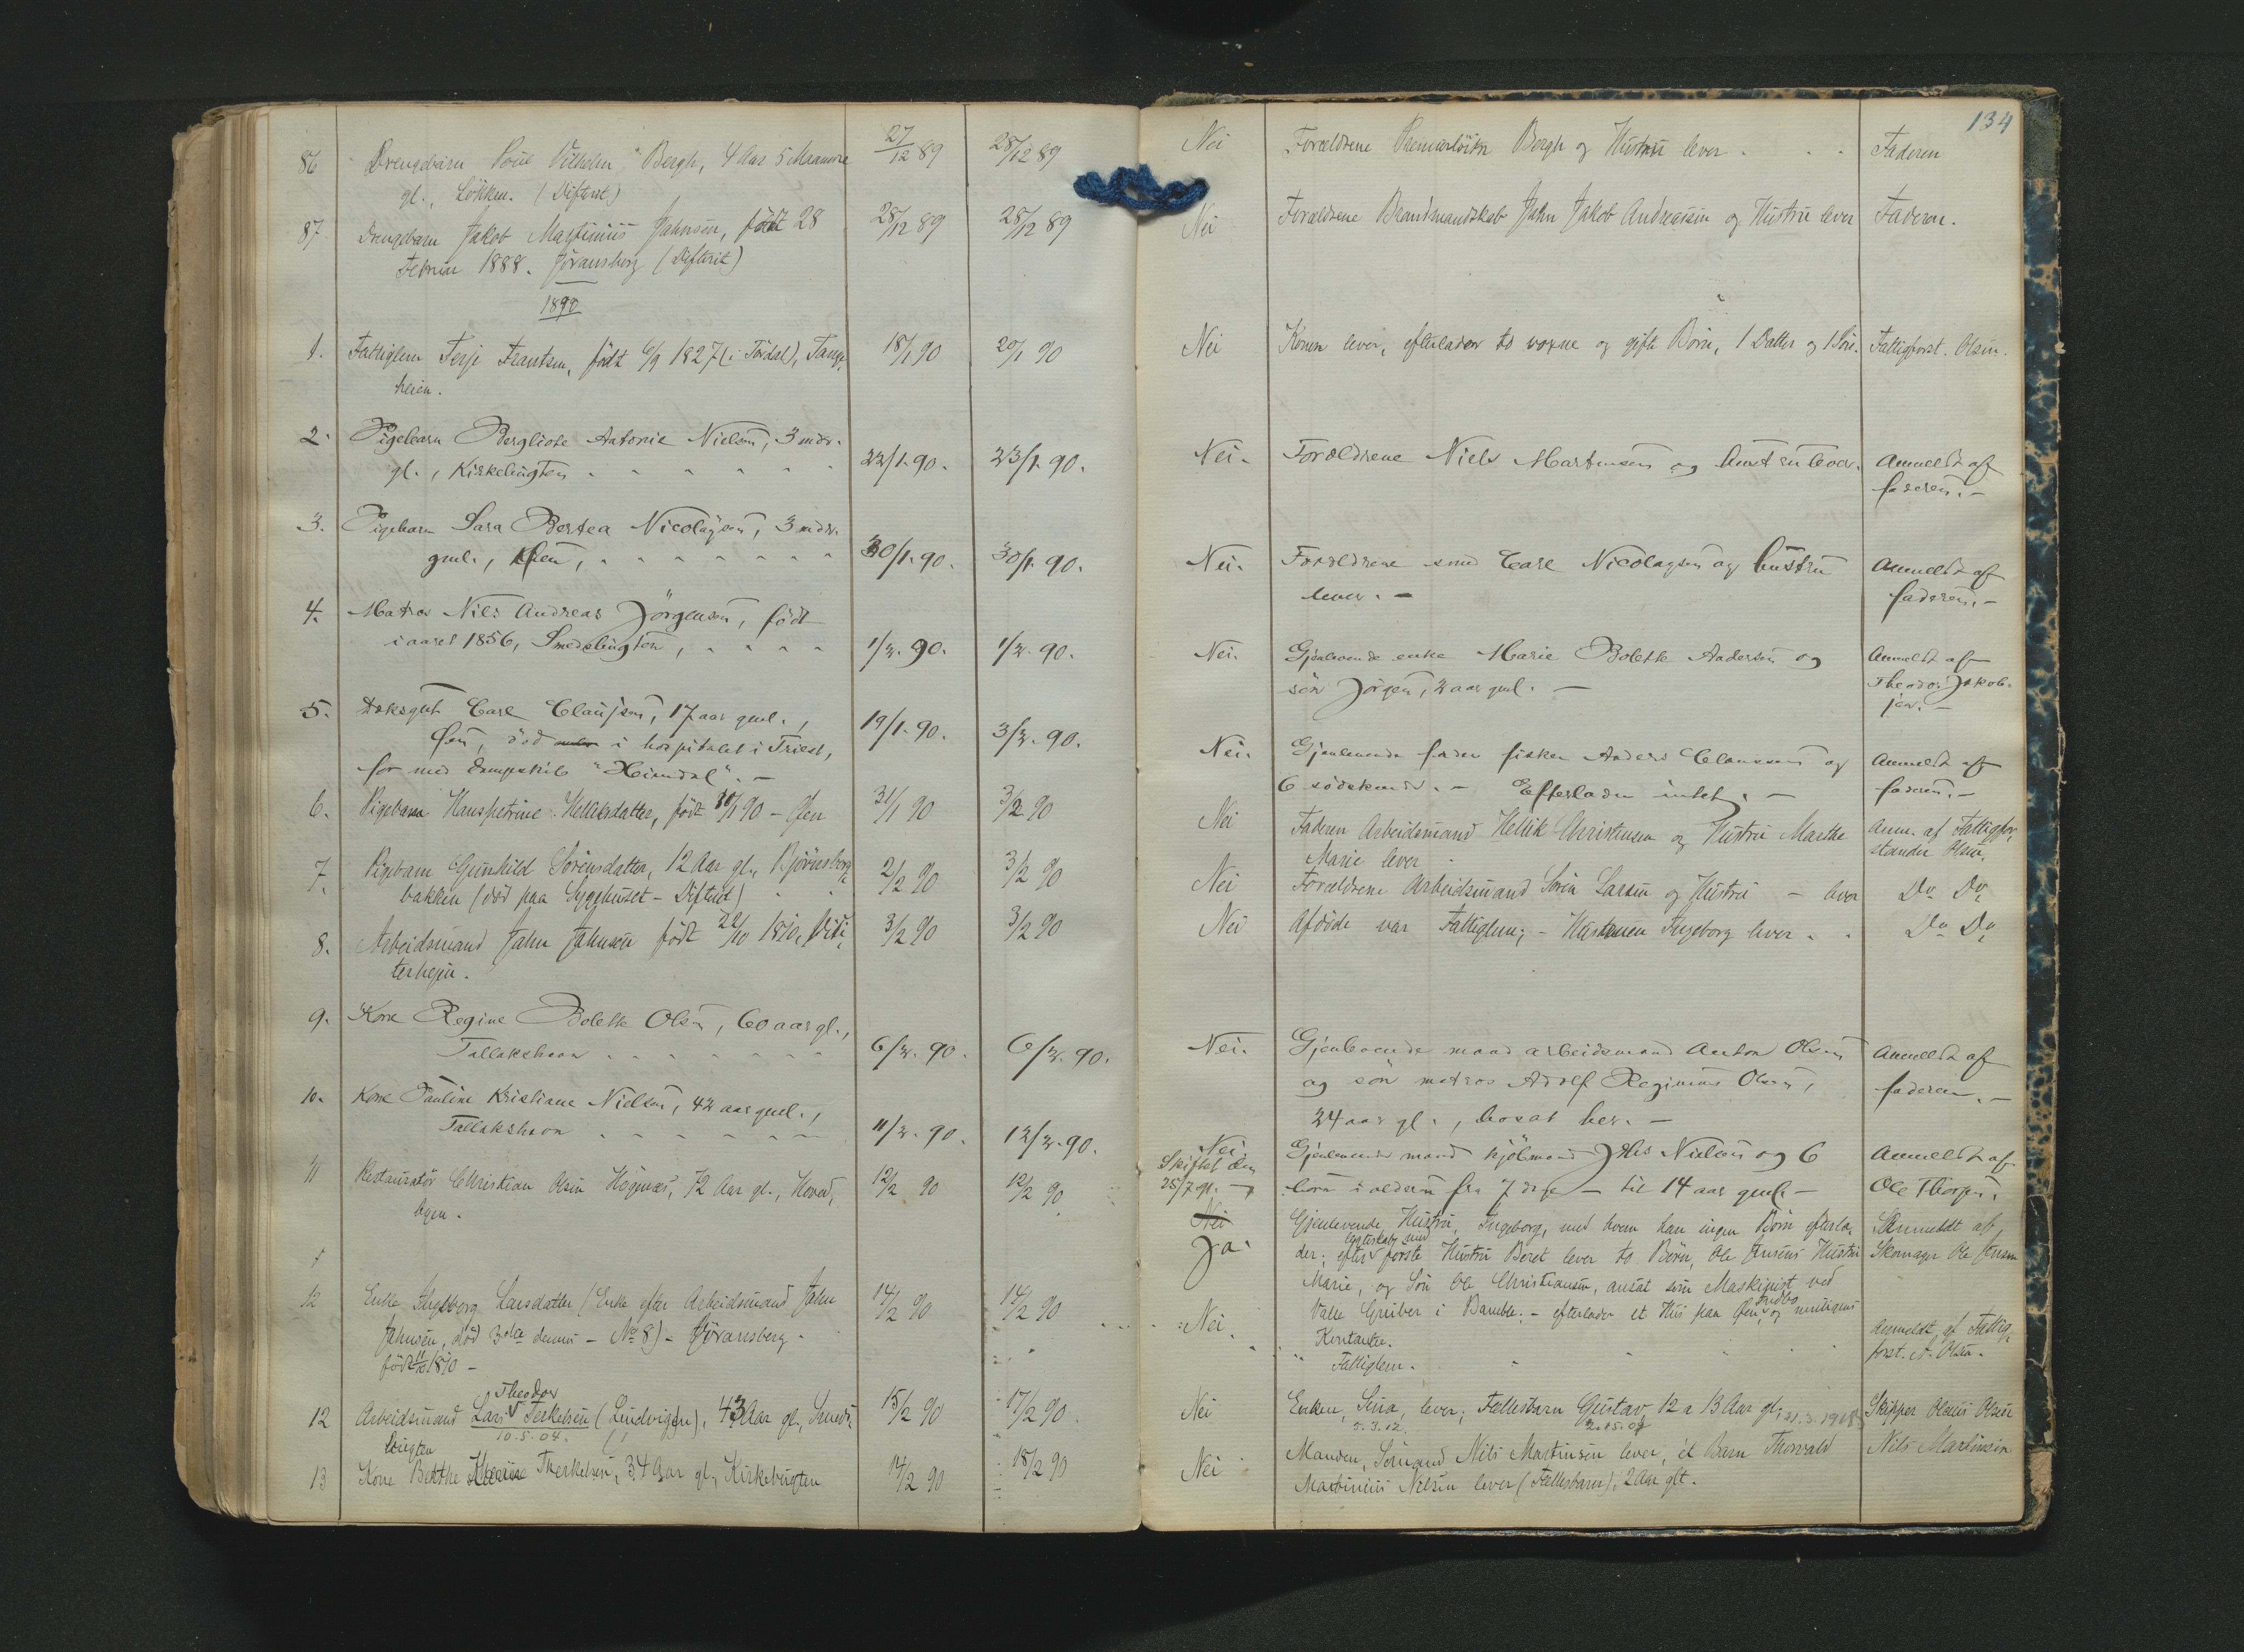 134
86 Drengebarn Poul Vilhelm Bergh, 4 Aar 5 Maaneder 27/12 89 28/12 89 Nei Forældrene Premierløitn Bergh og Hustru lever Faderen
gl., Løkken. (Difterit)
87 Drengebarn Jakob Martinius Jahnsen, født 28 28/12 89 28/12 89 Nei Forældrene Brandmandskab Jahn Jakob Andreassen og Hustru lever Faderen.
Februar 1888. Jøransberg (Difterit)
1890
1. Fattiglem Terje Frantsen, født 6/9 1827 (i Tørdal), Tangen 18/1 90 20/1 90 Nei Konen lever, efterlader to voxne og gifte Børn, 1 Datter og 1 Søn. Fattigforst. Olsen.
heien.
2. Pigebarn Bergliote Antonie Nielsen, 3 mdr.
gl., Kirkebugten 22/1. 90. 23/1. 90. Nei. Forældrene Niels Martinsen og hustru lever. Anmeldt af
faderen. —
3. Pigebarn Sara Bertea Nicolaysen, 3 mdr.
gml., Øen, 30/1. 90. 30/1. 90. Nei. Forældrene smed Carl Nicolaysen og hustru Anmeldt af
lever. — faderen. —
4. Matros Nils Andreas Jörgensen, født
i aaret 1856, Smedsbugten, 1/2. 90. 1/2. 90. Nei. Gjenlevende enke Marie Bolette Andersen og Anmeldt af
søn Jörgen, 2 aar gml. — Theodor Jakob-
sen. —
5. Dæksgut Carl Claussen, 17 aar gml., 19/1. 90. 3/2. 90. Nei. Gjenlevende fader fisker Anders Claussen og Anmeldt af
Øen, død i hospitalet i Triest, 6 södskende. — Efterlader intet. — faderen. —
for med dampskib "Heimdal". —
6. Pigebarn Hanspetrine Helliksdatter, født 30/1 90 — Øen 31/1 90 3/2 90 Nei Faderen Arbeidsmand Hellik Christensen og Hustru Marthe Anm. af Fattigfor-
Marie lever stander Olsen.
7. Pigebarn Gunhild Sörensdatter, 12 Aar gl., Bjørnsberg- 2/2 90 3/2 90 Nei Forældrene Arbeidsmand Sören Larsen og Hustru — lever Do Do
bakken (död paa Sygehuset — Difterit)
8. Arbeidsmand Jahn Jahnsen født 22/10 1810, 3/2 90 3/2 90 Nei Afdöde var Fattiglem; — Hustruen Ingeborg lever. Do Do
terheien.
9. Kone Regine Bolette Olsen, 60 aar gl.,
Tallakshavn 6/2. 90. 6/2. 90. Nei. Gjenlevende mand arbeidsmand Anton Olsen Anmeldt af
og sön matros Adolf Reginius Olsen, faderen. —
24 aar gl., bosat her. —
10. Kone Pauline Kristiane Nielsen, 42 aar gml.,
Tallakshavn 11/2. 90. 12/2. 90. Nei. Gjenlevende mand kjølmand Nielsen og 6 Anmeldt af
Skiftet den
25/7 91. — börn i alderen fra 7 dage — til 14 aar gml. — Ole Thorsen.
11 Restauratör Christian Olsen Högnæs, 72 Aar gl., Hoved- 12/2 90 12/2 90 Nei
Ja. Gjenlevende Hustru, Ingeborg, med hvem han ingen Børn efterla- Anmeldt af
bgen. der; efter ægteskab med første Hustru Beret lever to Børn, Ole Jensens Hustru Skomager Ole Jensen
Marie, og Søn Ole Christiansen, ansat som Maskinist ved
Valle Gruber i Bamble; — efterlader et Hus paa Øen, Indbo og muligens
Kontanter.
12 Enke Ingeborg Larsdatter (Enke efter Arbeidsmand Jahn 14/2 90 14/2 90 Nei. Fattiglem. Anmeldt af Fattig-
Jahnsen, död 3die dennes — No 8) — Jøransberg. forst. A. Olsen.
født 11/10 1810 —
12 Arbeidsmand Lars Theodor Terkelsen (Ludvigsen), 43 Aar gl., Smeds- 15/2 90 17/2 90 Nei Enken, Lina, lever; Fællesbarn Gustav 12 a 13 Aar gl. Skipper Olaus Olsen
10.5.04. 5.3.12.
bugten
13 Kone Berthe Marie Therkelsen, 34 Aar gl., Kirkebugten 14/2 90 18/2 90 Nei Manden, Sømand Nils Martinsen lever, ét Barn Thorvald Nils Martinsen
Martinius Nilsen lever (Fællesbarn), 2 Aar glt.